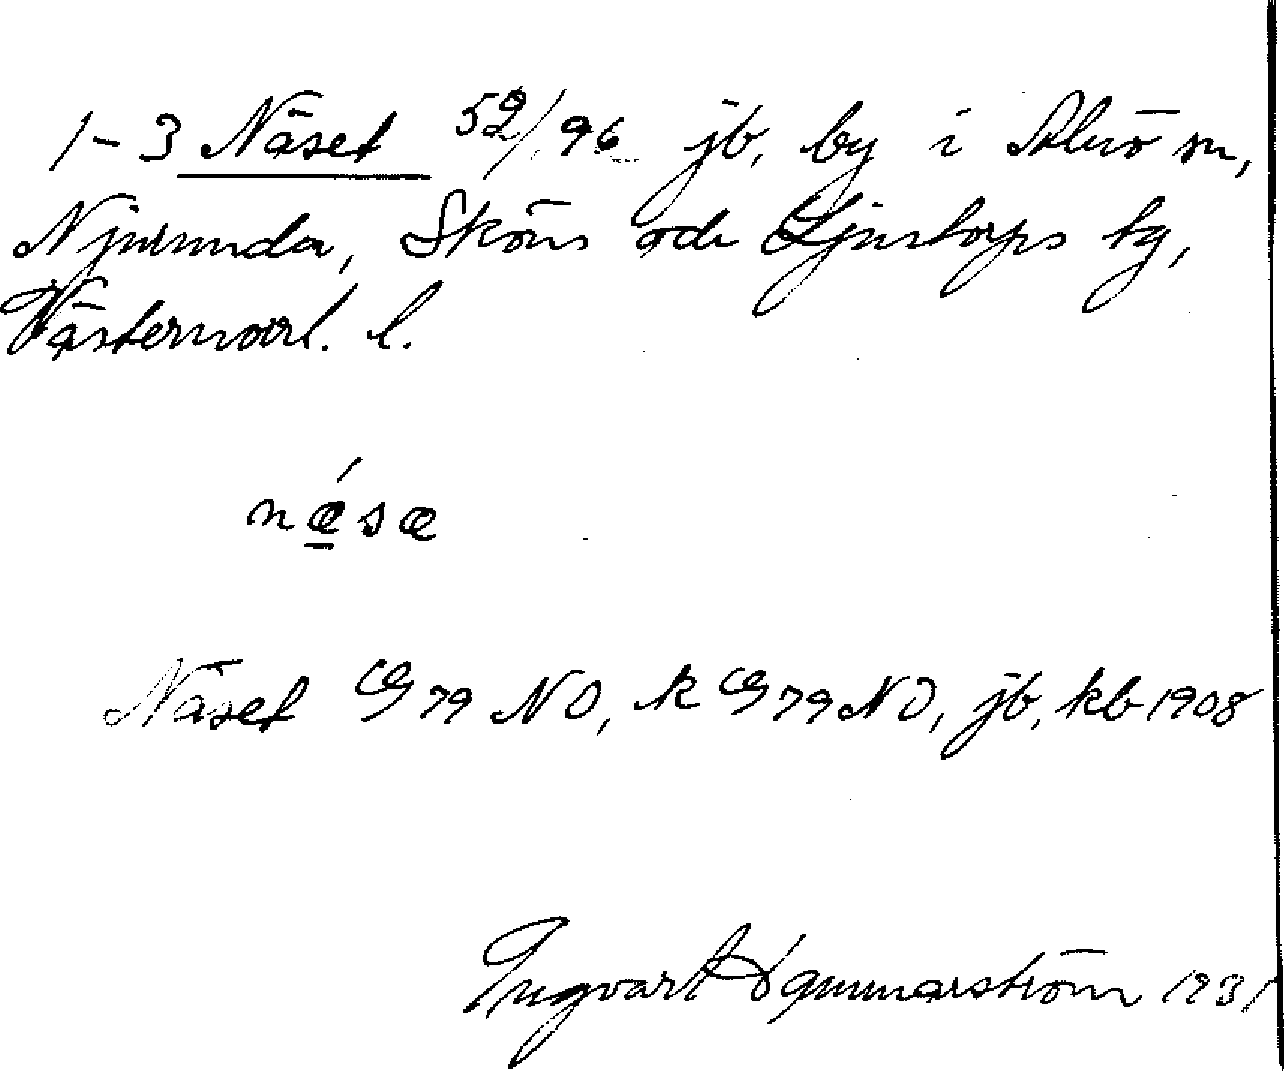 1-3 Näset 52/96 jb, by i Alnö sn,
Njurunda, Sköns och Ljustorps tg,
Västernorrl. l.
nǽ̱sæ
Näset GS 79 NO, k GS 79 NO, jb, kb 1908
Ingvart Hammarström 1931